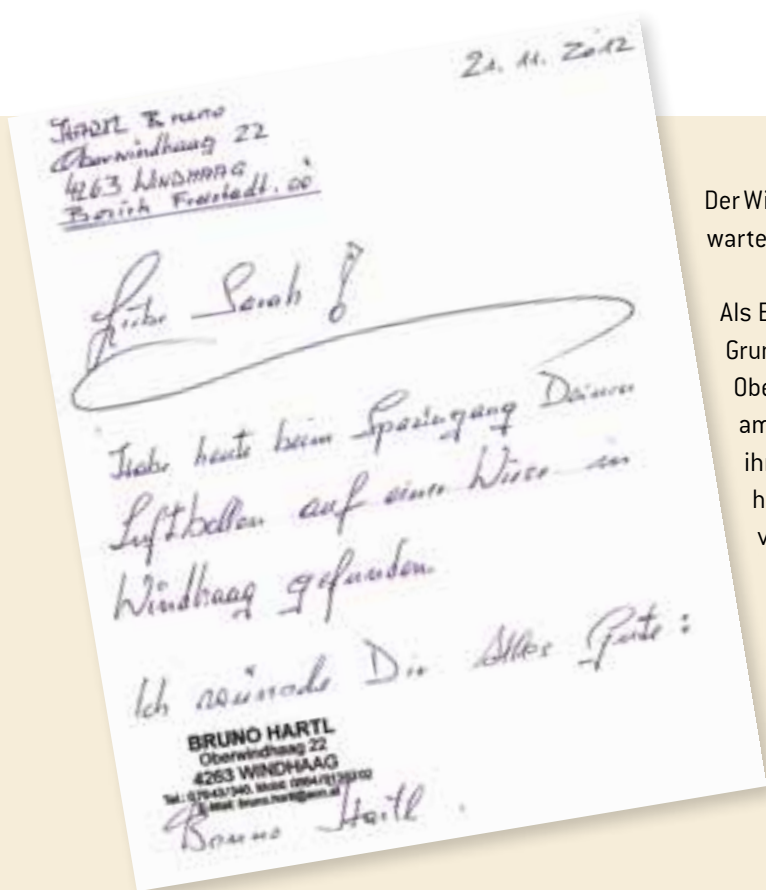 21. 11. 2012
HARTL Bruno
Oberwindhaag 22
4263 WINDHAAG
Bezirk Freistadt. OÖ
Liebe Sarah!
Habe heute beim Spaziergang Deinen
Luftballon auf einer Wiese in
Windhaag gefunden.
Ich wünsche Dir Alles Gute:
BRUNO HARTL
Oberwindhaag 22
4263 WINDHAAG
Tel.: Mobil:
E-Mail: bruno.hartl@aon.at
Bruno Hartl
Der Wi
warte
Als
Grun
Obe
am